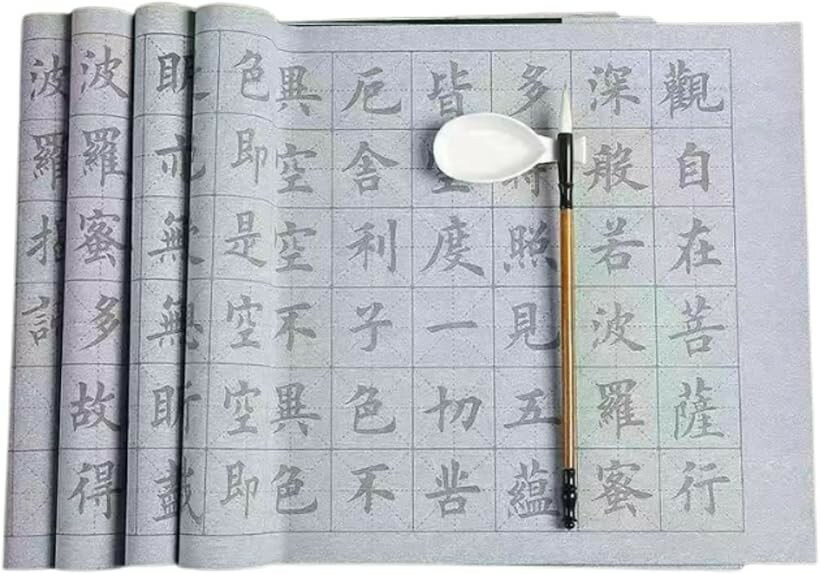 觀自在菩薩行
深般若波羅蜜
多照見五蘊
皆度一切苦
厄舍利子色不
異空空不異色
色即是空空即
眼無無盡
波羅蜜多故得
波羅揭諦